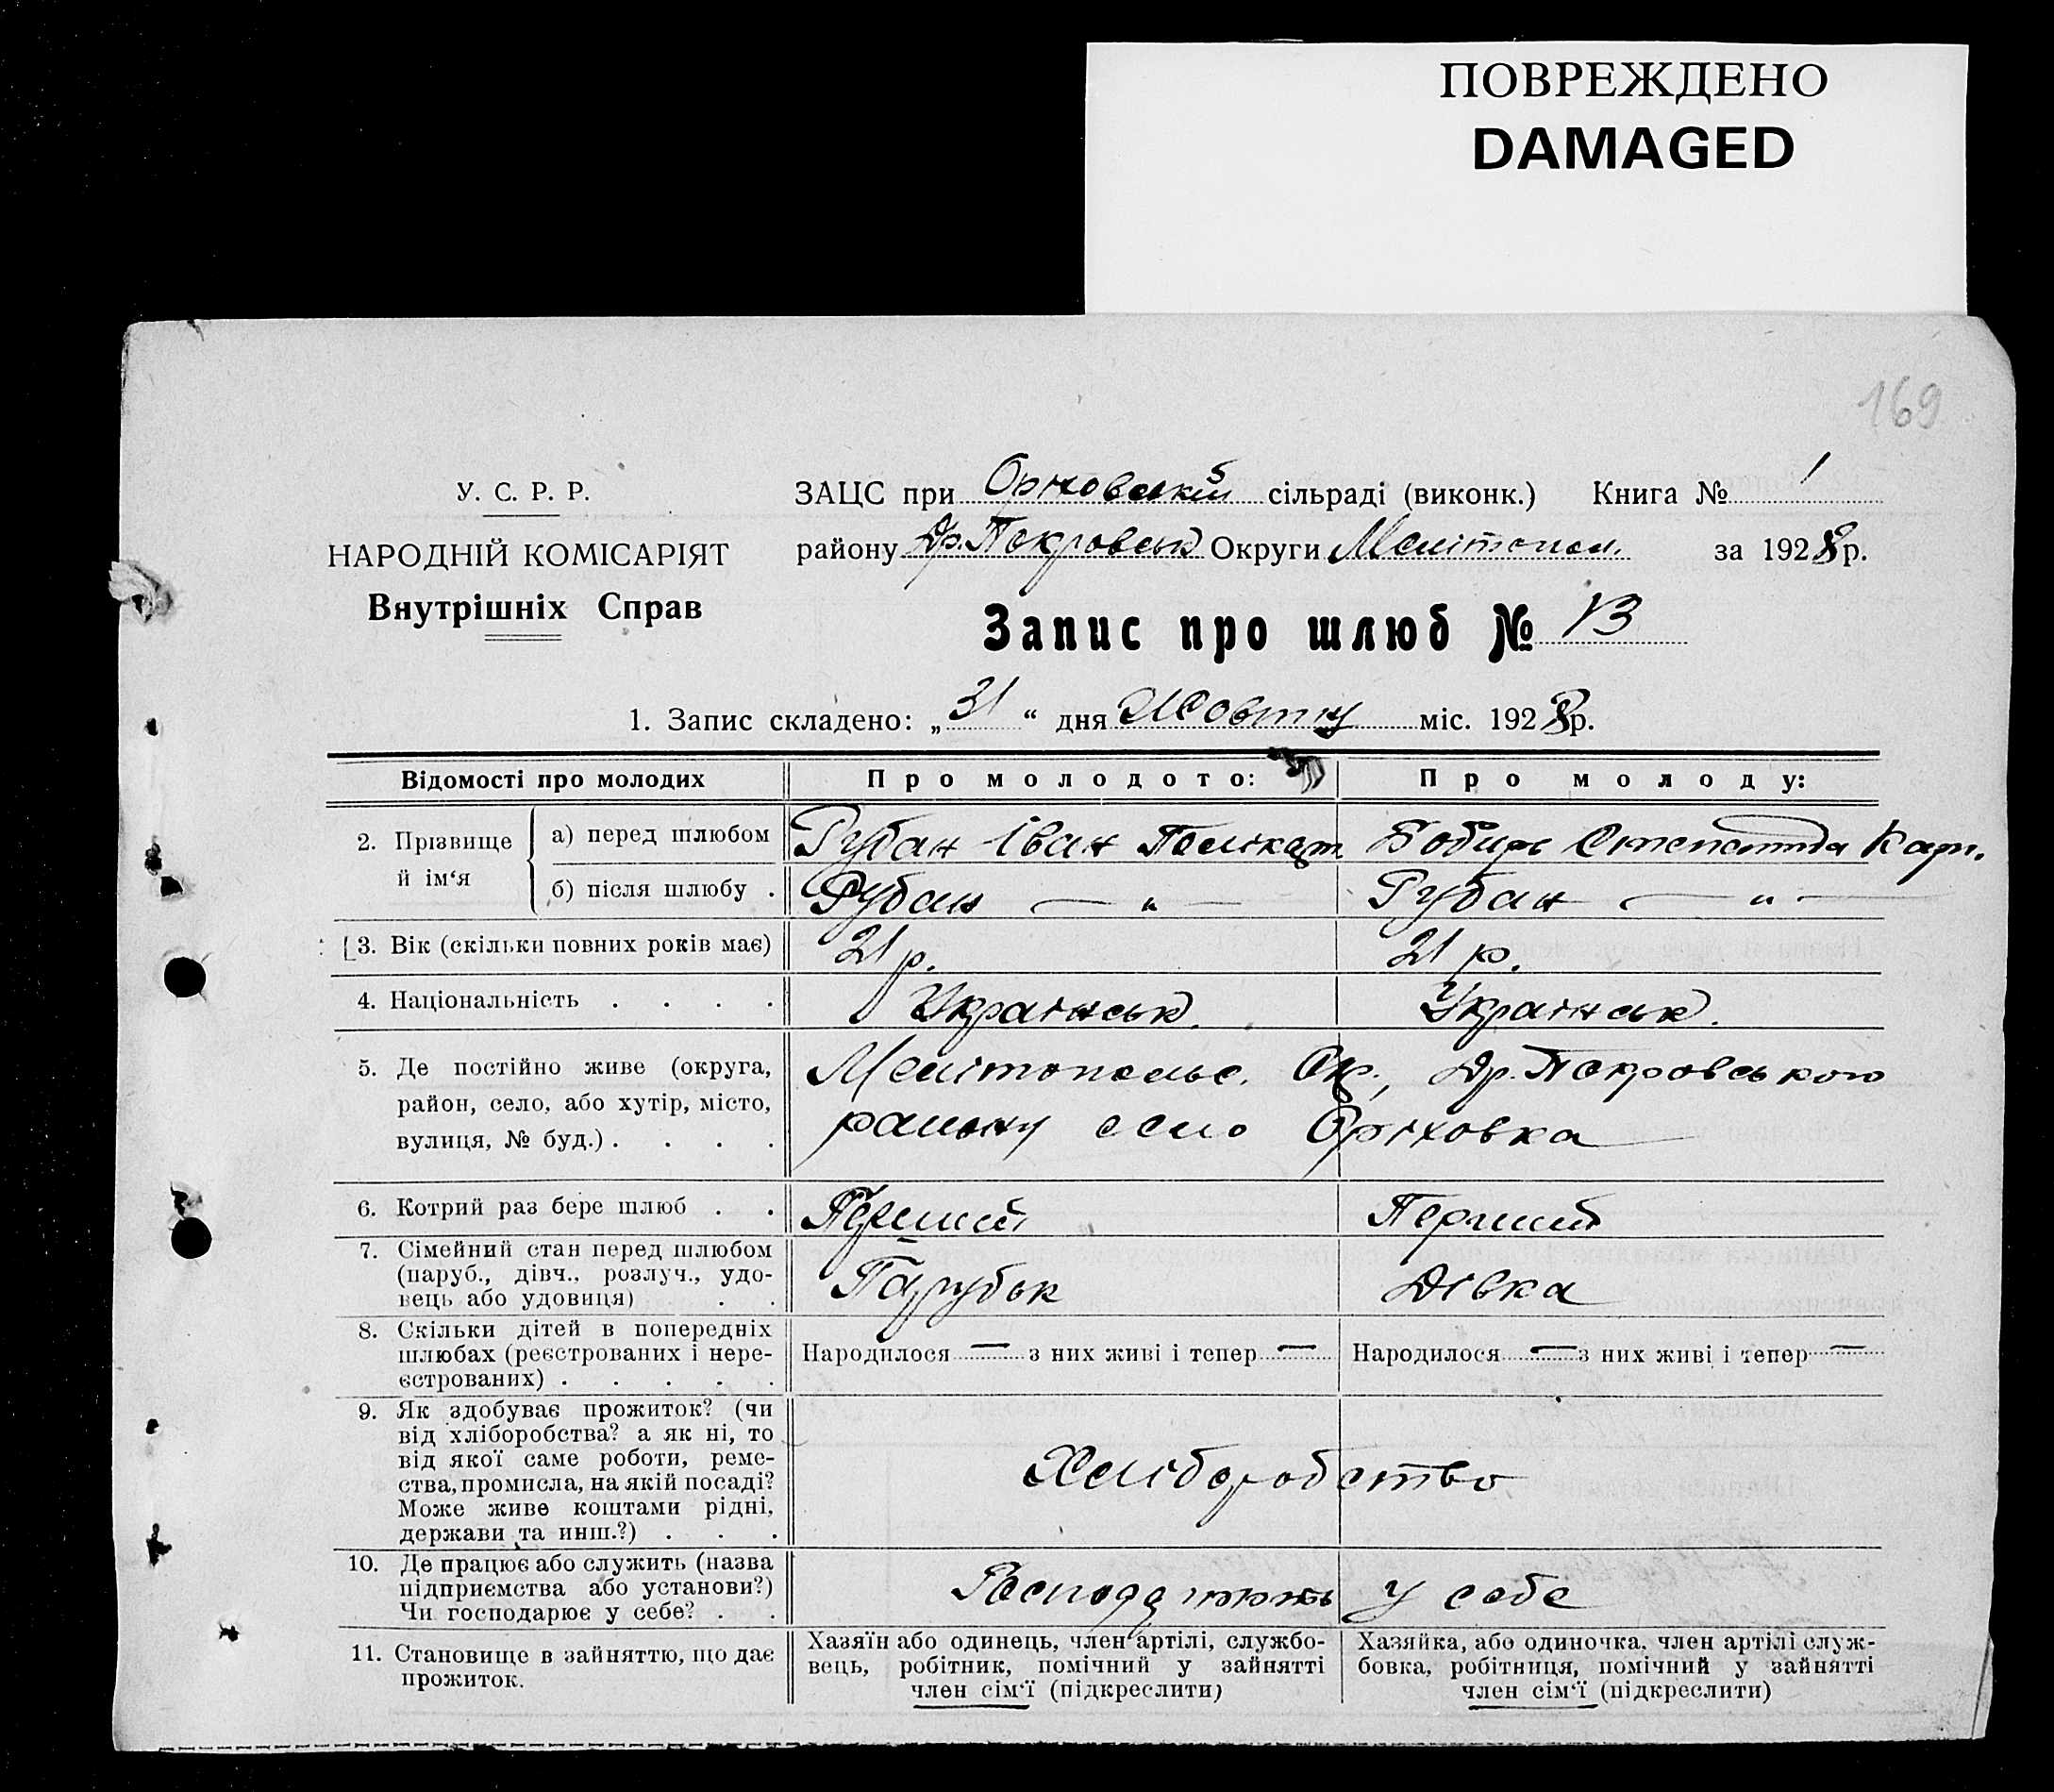 ПОВРЕЖДЕНО
DAMAGED
169
У. С. Р. Р.
НАРОДНІЙ КОМІСАРІЯТ
Внутрішніх Справ
ЗАЦС при Оріховській сільраді (виконк.) Книга № 1
району Др. Покровськ Округи Мелітопол. за 1928 р.
Запис про шлюб № 13
1. Запис складено: „31“ дня Жовтну міс. 1928 р.
Відомості про молодих
Про молодого:
Про молоду:
2. Прізвище й ім‘я
а) перед шлюбом
Рубан Іван Полікарп
Бобирь Степанида Карп.
б) після шлюбу .
Рубан — " —
Рубан — " —
3. Вік (скільки повних років має)
21 р.
21 р.
4. Національність . . . .
Українськ.
Українськ.
5. Де постійно живе (округа,
район, село, або хутір, місто,
вулиця, № буд.) . . . .
Мелітопольс. Окр., Др. Покровського
району село Оріховка
6. Котрий раз бере шлюб . .
Перший
Перший
7. Сімейний стан перед шлюбом
(паруб., дівч., розлуч., удо-
вець або удовиця) . .
Парубок
Дівка
8. Скільки дітей в попередніх
шлюбах (реєстрованих і нере-
єстрованих) . . . . .
Народилося — з них живі і тепер —
Народилося — з них живі і тепер —
9. Як здобуває прожиток? (чи
від хліборобства? а як ні, то
від якої саме роботи, реме-
ства, промисла, на якій посаді?
Може живе коштами рідні,
держави та инш.?) . . .
Хліборобство
10. Де працює або служить (назва
підприємства або установи?)
Чи господарює у себе? . .
Господарюють у себе
11. Становище в зайняттю, що дає
прожиток.
Хазяїн або одинець, член артілі, службо-
вець, робітник, помічний у зайнятті
член сім‘ї (підкреслити)
Хазяйка, або одиночка, член артілі служ-
бовка, робітниця, помічний у зайнятті
член сім‘ї (підкреслити)